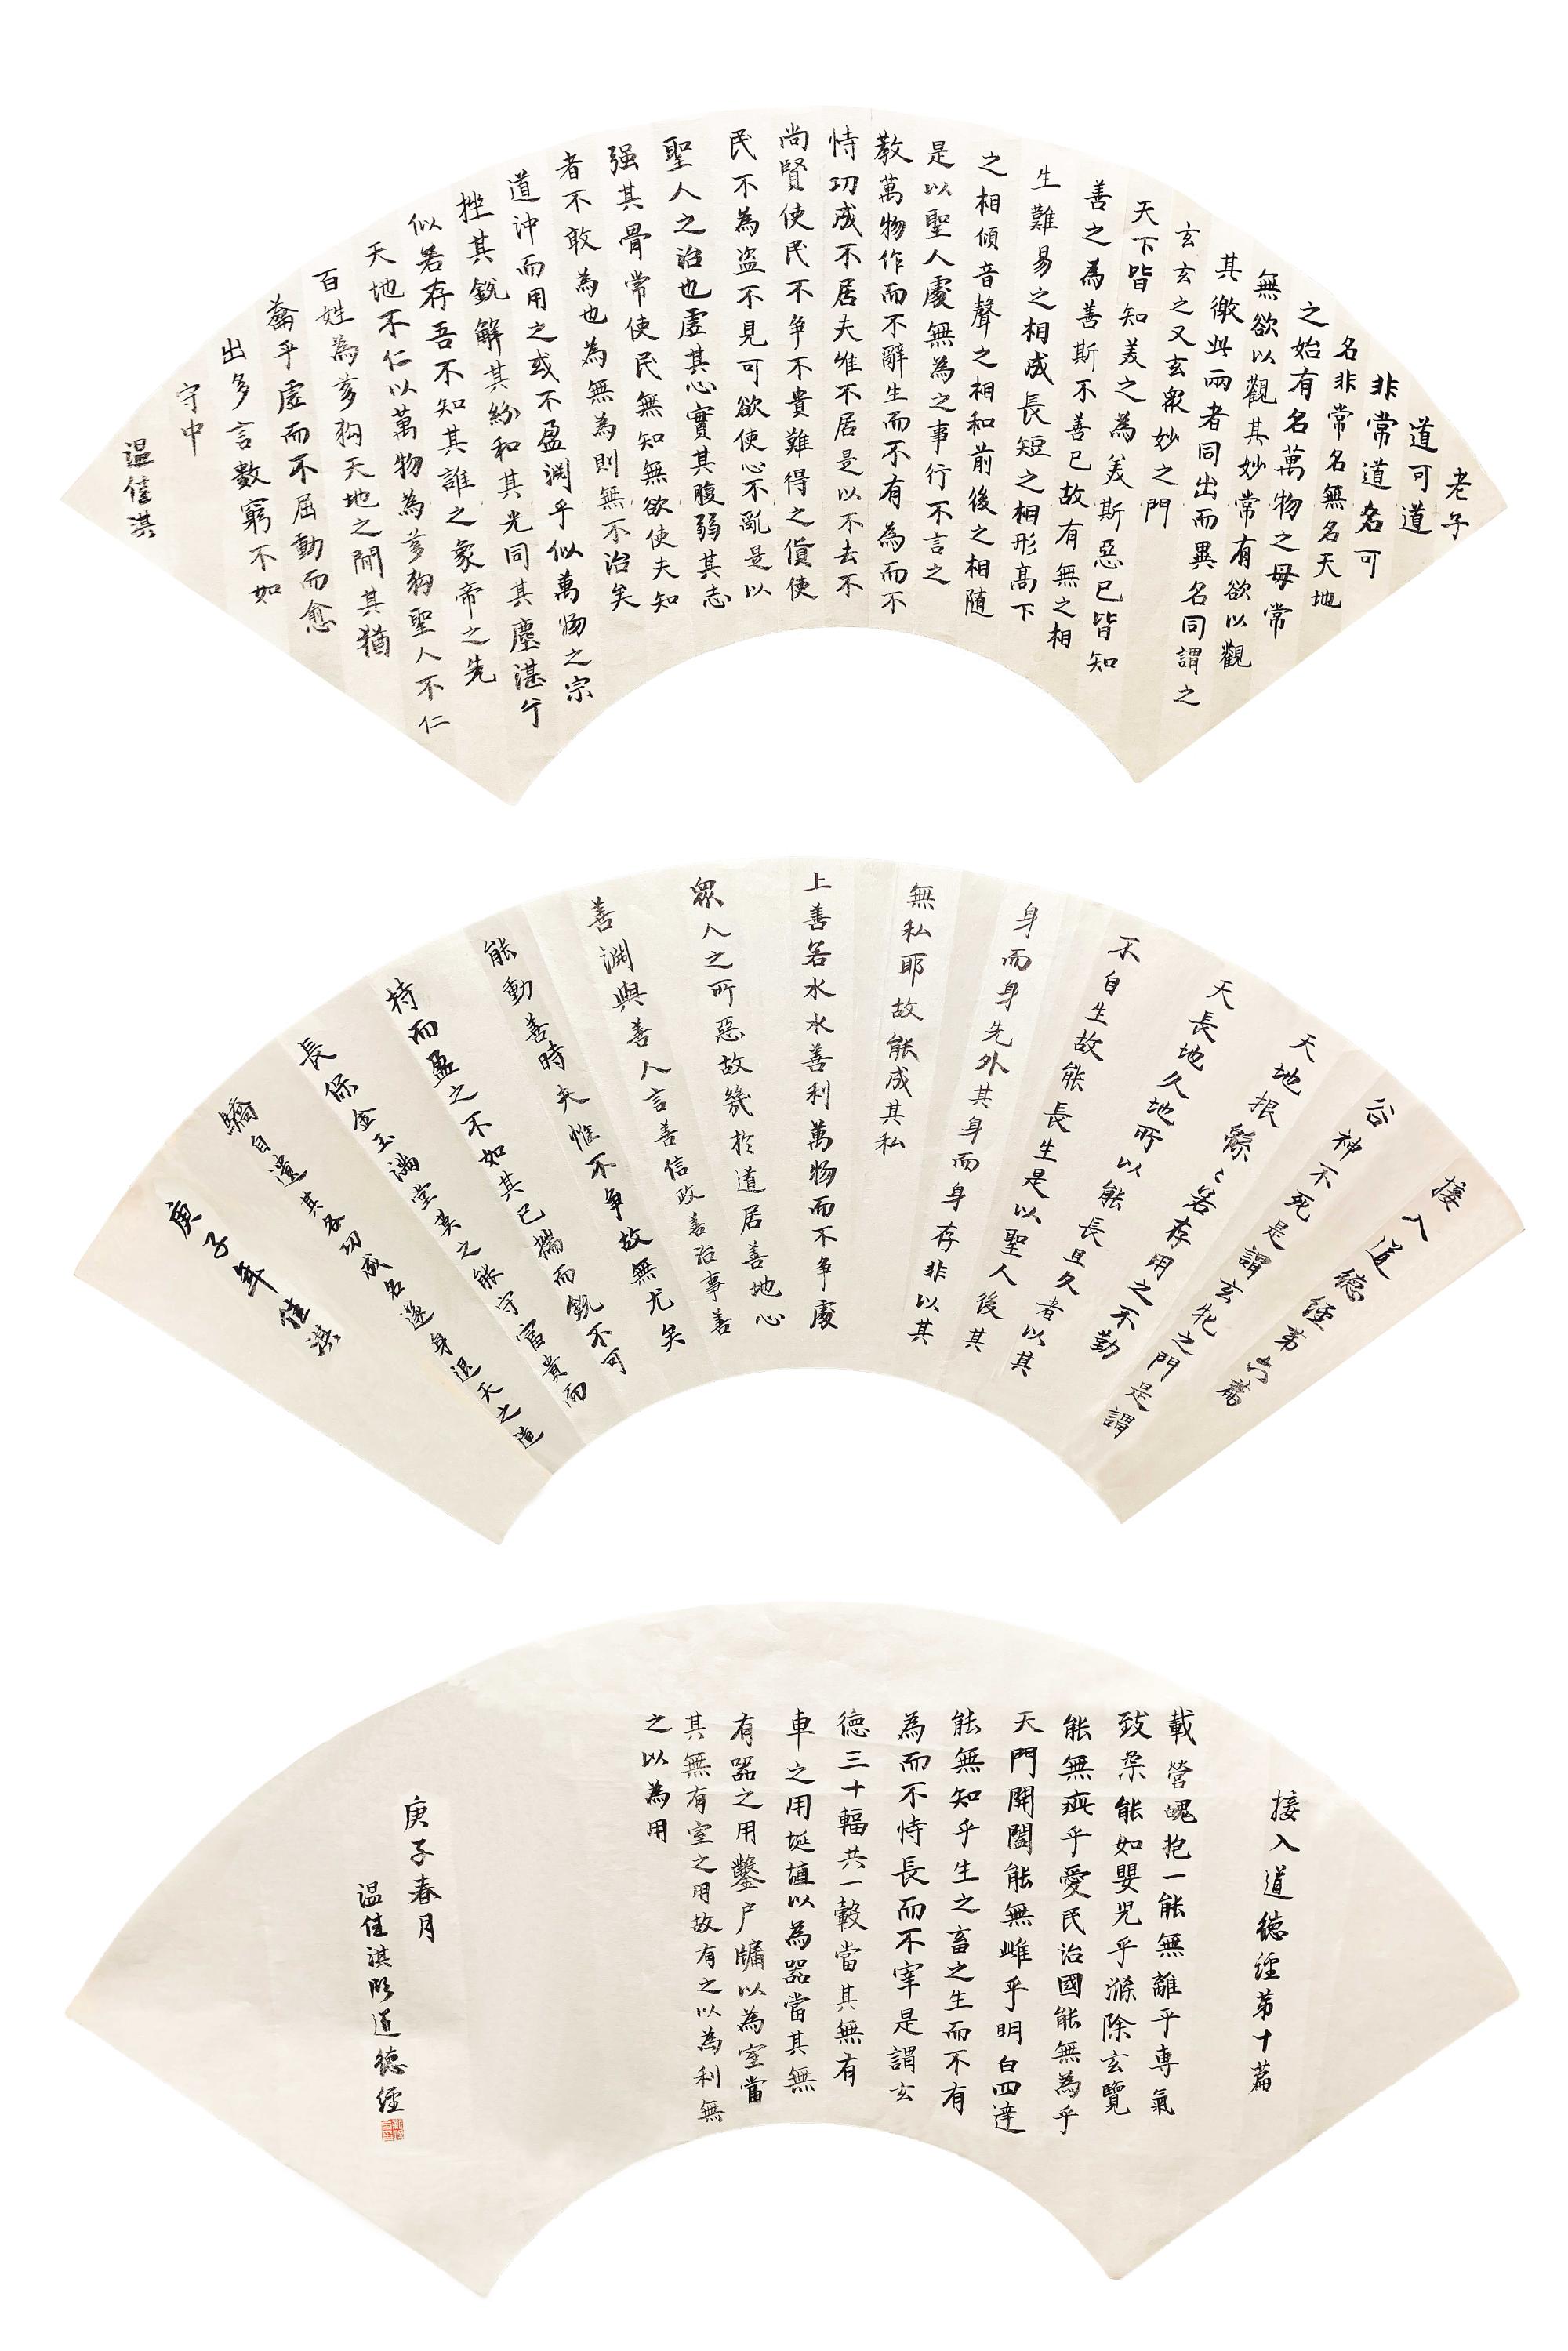 老子
道可道
非常道名可
名非常名無名天地
之始有名萬物之母常
無欲以觀其妙常有欲以觀
其徼此兩者同出而異名同謂之
玄玄之又玄眾妙之門
天下皆知美之為美斯惡已皆知
善之為善斯不善已故有無之相
生難易之相成長短之相形高下
之相傾音聲之相和前後之相随
是以聖人處無為之事行不言之
教萬物作而不辭生而不有為而不
恃功成不居夫唯不居是以不去不
尚賢使民不争不貴難得之貨使
民不為盗不見可欲使心不亂是以
聖人之治也虛其心實其腹弱其志
强其骨常使民無知無欲使夫知
者不敢為也為無為則無不治矣
道沖而用之或不盈渊乎似萬物之宗
挫其銳解其紛和其光同其塵湛兮
似若存吾不知其誰之象帝之先
天地不仁以萬物為芻狗聖人不仁
百姓為芻狗天地之間其猶
籥乎虛而不屈動而愈
出多言數窮不如
守中
温佳淇
接入道德經第六篇
谷神不死是謂玄牝之門是謂
天地根緜〻若存用之不勤
天長地久地所以能長且久者以其
不自生故能長生是以聖人後其
身而身先外其身而身存非以其
無私耶故能成其私
上善若水水善利萬物而不争處
眾人之所惡故幾於道居善地心
善渊與善人言善信政善治事善
能動善時夫惟不争故無尤矣
持而盈之不如其已揣而銳不可
長保金玉滿堂莫之能守富貴而
驕自遺其咎功成名遂身退天之道
庚子年佳淇
接入道德經第十篇
載營魄抱一能無離乎專氣
致柔能如嬰兒乎滌除玄覽
能無疵乎愛民治國能無為乎
天門開闔能無雌乎明白四達
能無知乎生之畜之生而不有
為而不恃長而不宰是謂玄
德三十輻共一轂當其無有
車之用埏埴以為器當其無
有器之用鑿户牖以為室當
其無有室之用故有之以為利無
之以為用
庚子春月
温佳淇臨道德經